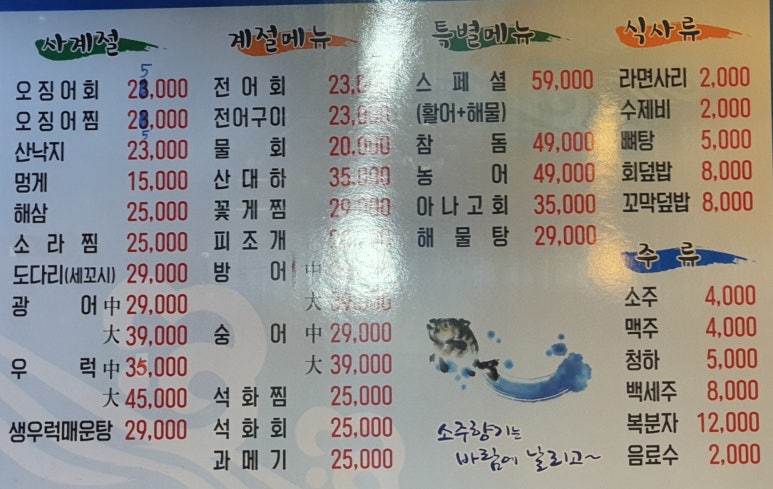 사계절
오징어회 25,000
오징어찜 25,000
산낙지 23,000
멍게 15,000
해삼 25,000
소라찜 25,000
도다리(세꼬시) 29,000
광어 中 29,000
大 39,000
우럭 中 35,000
大 45,000
생우럭매운탕 29,000
계절메뉴
전어회
전어구이 23,000
물회 20,000
산대하 35,000
꽃게찜 29,000
피조개
방어 中
大 39,000
숭어 中 29,000
大 39,000
석화찜 25,000
석화회 25,000
과메기 25,000
특별메뉴
스페셜 59,000
(활어+해물)
참돔 49,000
농어 49,000
아나고회 35,000
해물탕 29,000
소주향기는
바람에 날리고~
식사류
라면사리 2,000
수제비 2,000
뼈탕 5,000
회덮밥 8,000
꼬막덮밥 8,000
주류
소주 4,000
맥주 4,000
청하 5,000
백세주 8,000
복분자 12,000
음료수 2,000